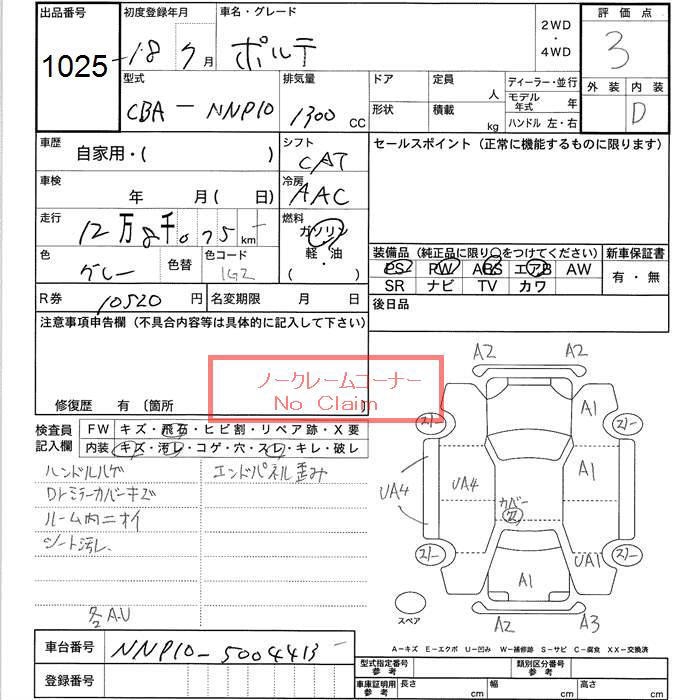 出品番号
1025
初度登録年月
18 7 月
車名・グレード
ポルテ
2WD
・
4WD
評価点
3
外装 内装
D
型式
CBA - NNP10
排気量
1300 CC
ドア
形状
定員
人
積載
kg
ディーラー・並行
モデル年式 年
ハンドル 左・右
車歴
自家用・( )
シフト
CAT
セールスポイント (正常に機能するものに限ります)
車検
年 月( 日)
冷房
AAC
走行
12万8千075 km
燃料
ガソリン
軽・油
( ・ )
色
グレー
色替
色コード
1G2
装備品 (純正品に限り○をつけてください) 新車保証書
PS PW ABS エアB AW
SR ナビ TV カワ
有・無
R券 10520 円
名変期限 月 日
後日品
注意事項申告欄 (不具合内容等は具体的に記入して下さい)
ノークレームコーナー
No Claim
修復歴 有 〔箇所
検査員
記入欄
FW キズ・飛石・ヒビ割・リペア跡・X要
内装 キズ・汚レ・コゲ・穴・スレ・キレ・破レ
ハンドルハゲ エンドパネル歪み
Drミラーカバーキズ
ルーム内ニオイ
シート汚レ
各A.U
A2 A2
A1
スリー スリー
UA4 UA4 A1
カバー
スリー スリー
UA1
A1
スペア
A2 A3
車台番号 NNP10-5004413
登録番号
A-キズ E-エクボ U-凹み W-補修跡 S-サビ C-腐食 XX-交換済
型式指定番号
参考
類別区分番号
参考
車庫証明用
参考
長さ cm 幅 cm 高さ cm